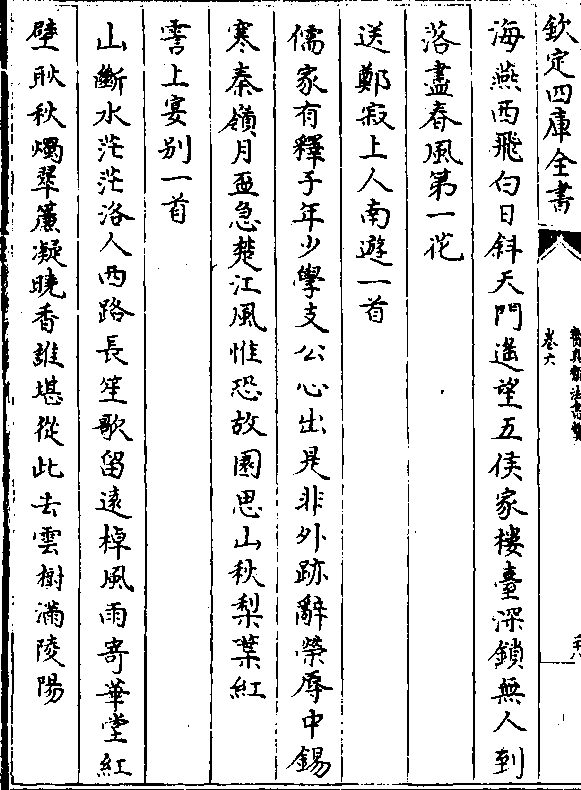 欽定四庫全書
寶真齋法書贊
卷六
海燕西飛白日斜天門遥望五侯家樓臺深鎖無人到
落盡春風第一花
送鄭寂上人南遊一首
儒家有釋子年少學支公心出是非外跡辭榮辱中錫
寒秦嶺月盃急楚江風惟恐故園思山秋梨葉紅
霅上宴别一首
山斷水茫茫洛人西路長笙歌留遠棹風雨寄華堂紅
壁耿秋燭翠簾凝曉香誰堪從此去雲樹滿陵陽